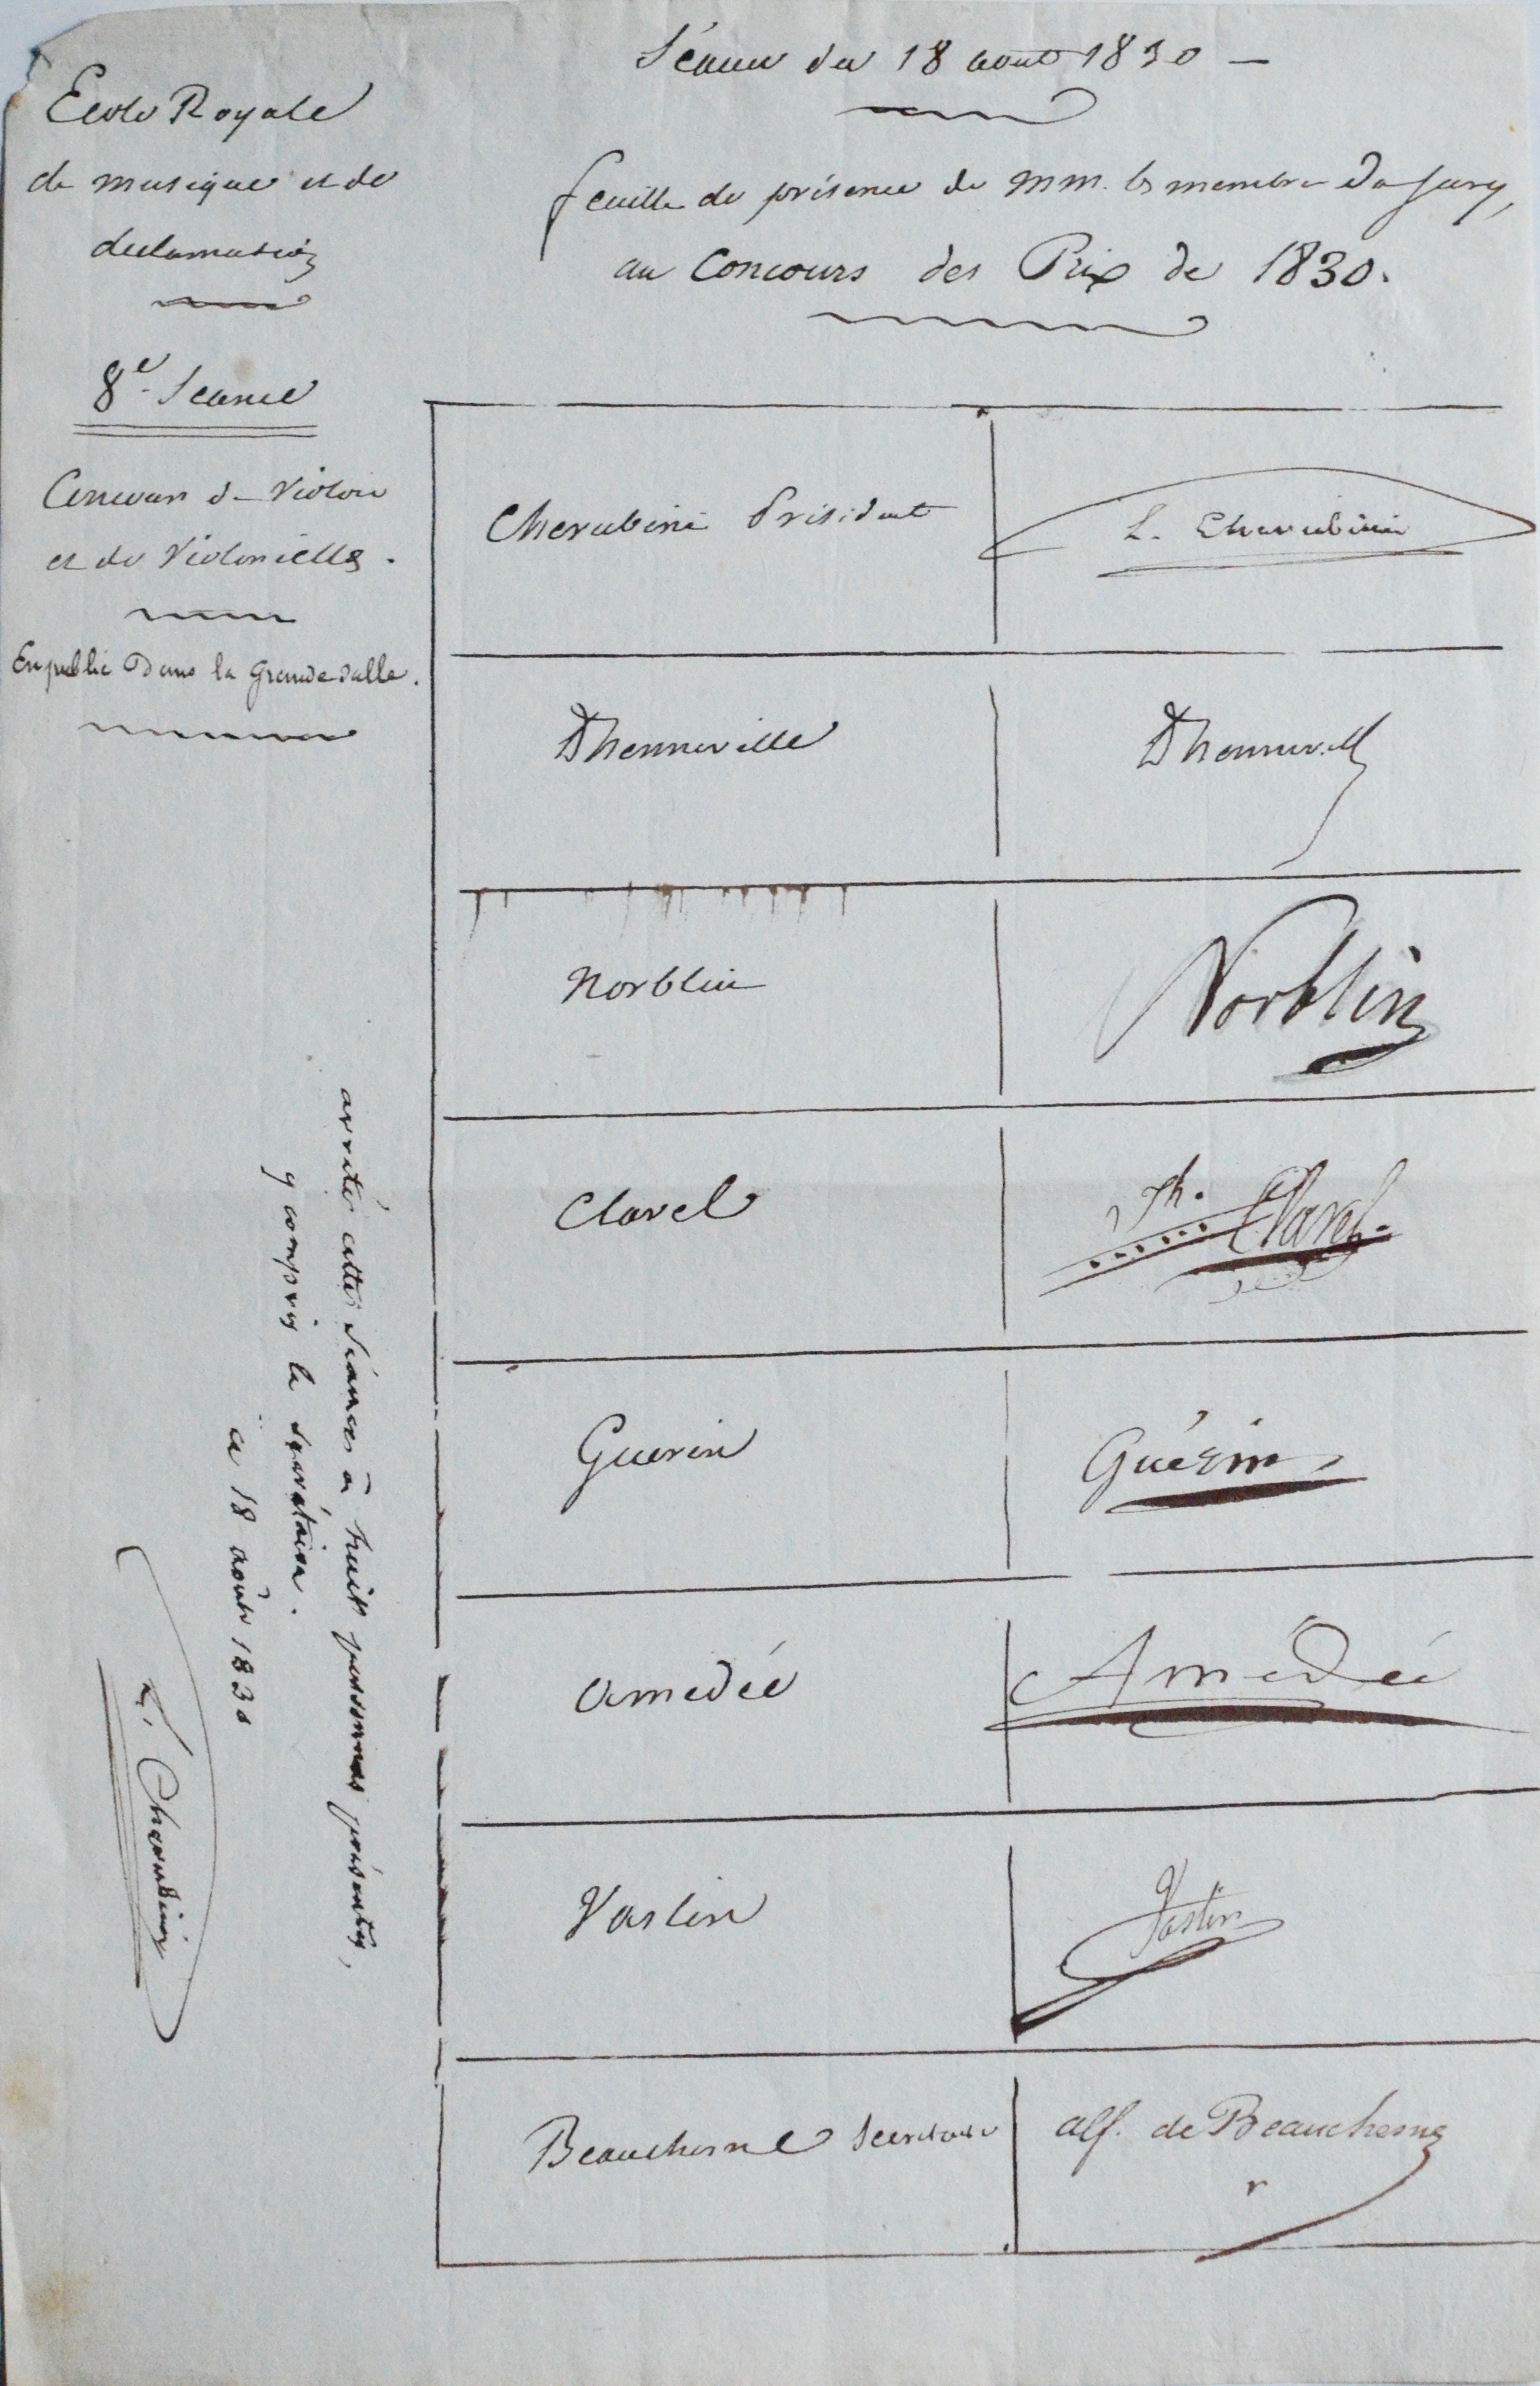 Ecole Royale
de musique et de
declamation
8e. Seance
Concours de Violon
et de Violoncelle.
En public Dans la Grande salle.
Séance du 18 aout 1830 —
feuille de présence de MM. les membres du Jury,
au Concours des Prix de 1830.
Cherubini Président
L. Cherubini
Dhenneville
Dhennevill
Norblin
Norblin
Clavel
Jh. Clavel.
Guerin
Guérin
Amedée
Amédée
Vaslin
Vaslin
Beauchesne Secretaire
alf. de Beauchesne
arrêtée cette séance à huit personnes présentes,
y compris le secrétaire.
ce 18 août 1830
L. Cherubini